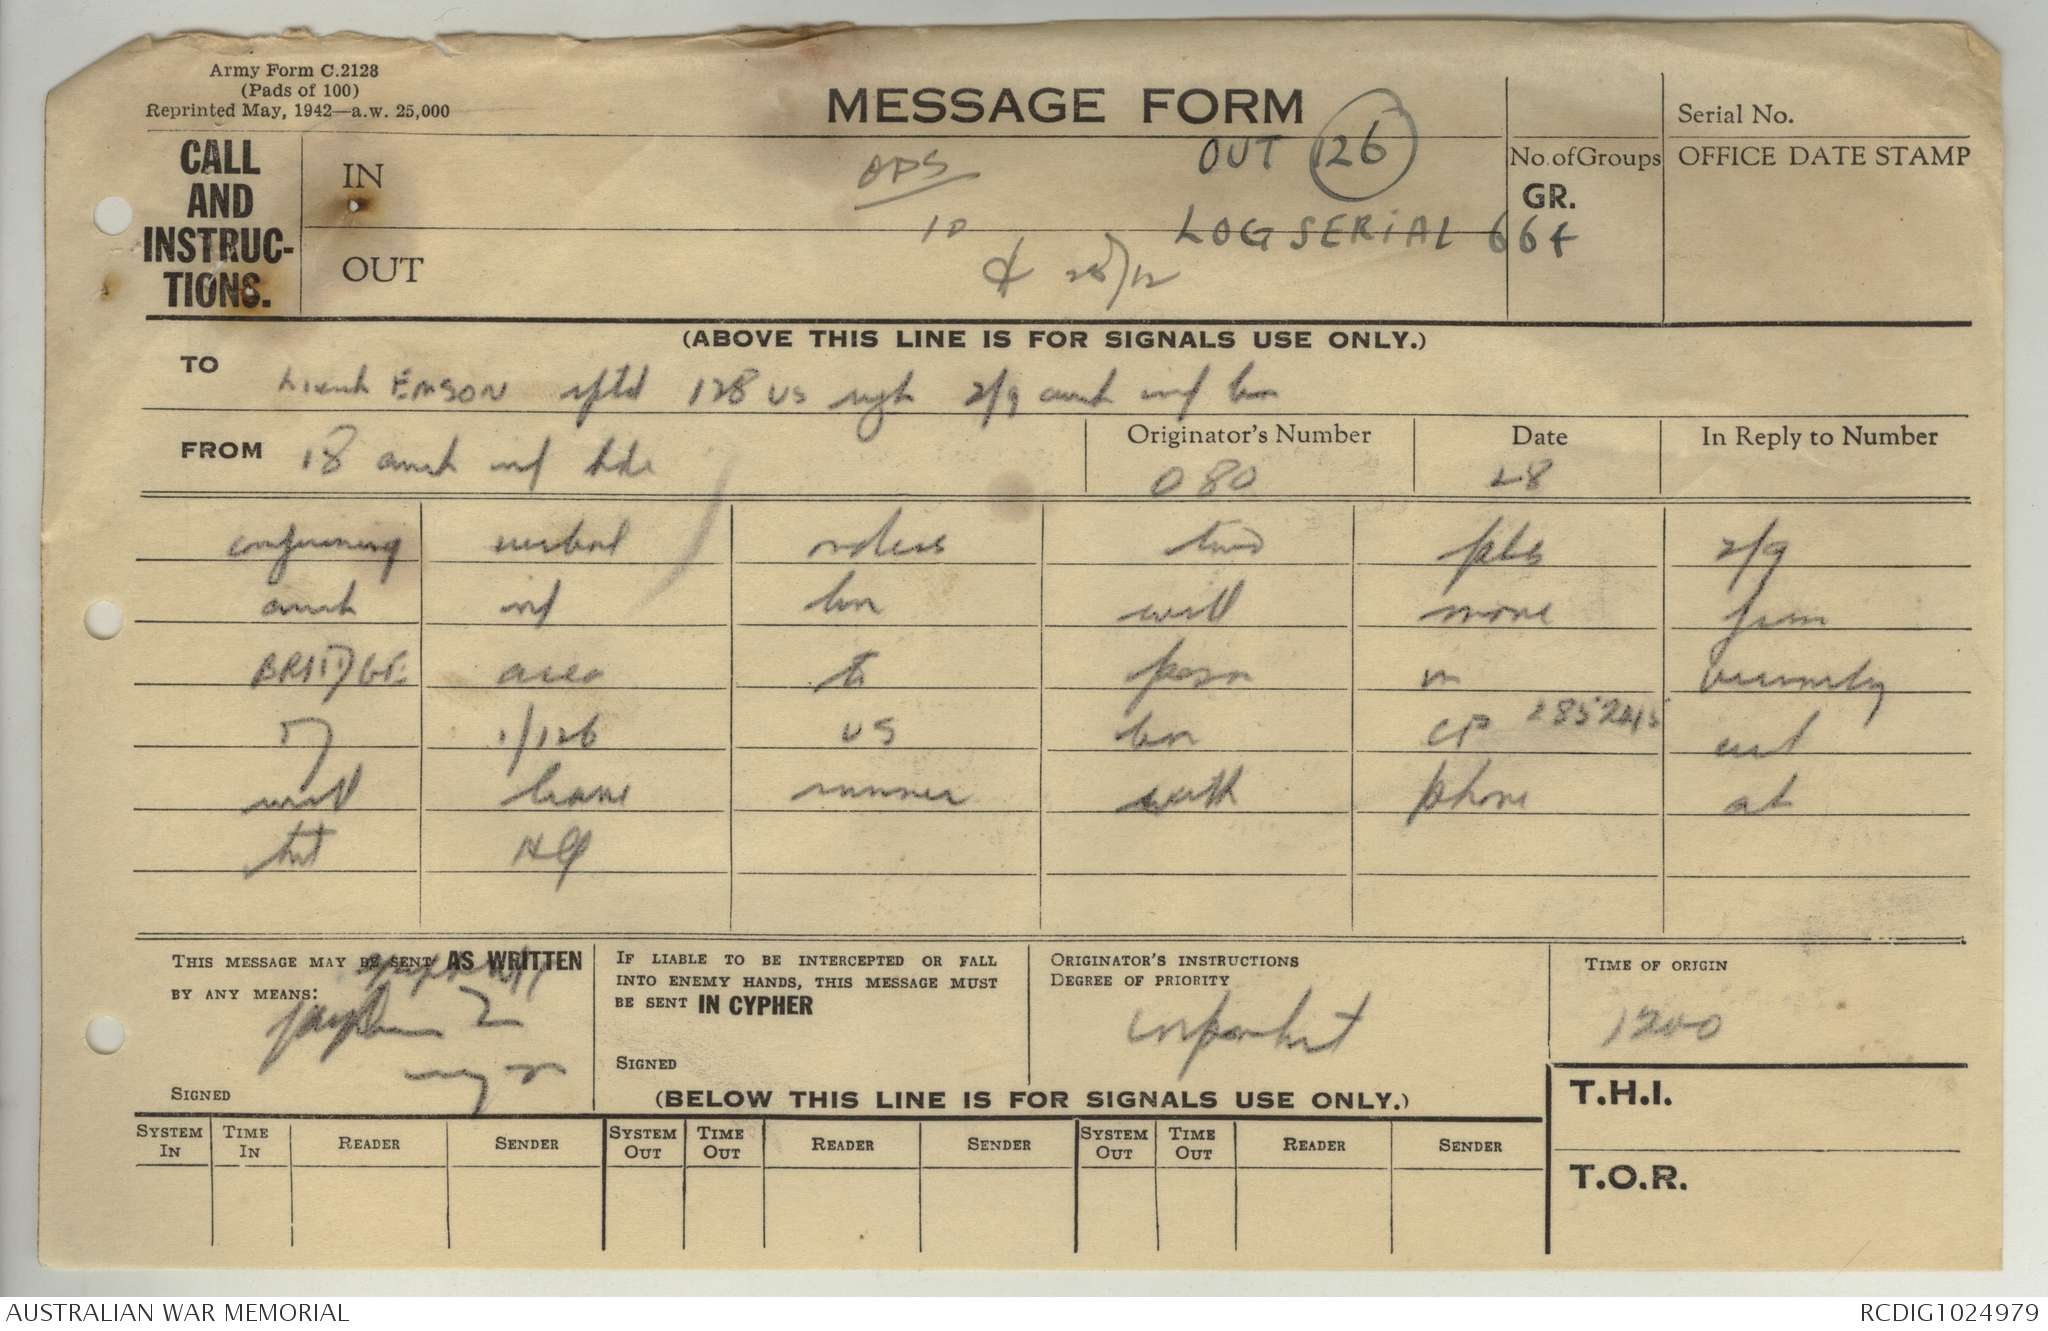 Army Form C.2128
(Pads of 100)
Reprinted May, 1942—a.w. 25,000
MESSAGE FORM
Serial No.
CALL AND INSTRUC-TIONS.
IN
OPS
OUT 26
No. of Groups
GR.
OFFICE DATE STAMP
10
LOG SERIAL 664
OUT
28/12
(ABOVE THIS LINE IS FOR SIGNALS USE ONLY.)
TO
Lieut EMSON rptd 128 US regt 2/9 aust inf bn
FROM 18 aust inf bde
Originator's Number 080
Date 28
In Reply to Number
confirming verbal orders two pls 2/9
aust inf bn will move from
BRIDGE area to posn in vicinity
of 1/126 US bn CP 285245
will leave runner with phone at
HQ
THIS MESSAGE MAY BE SENT AS WRITTEN
BY ANY MEANS:
SIGNED
IF LIABLE TO BE INTERCEPTED OR FALL
INTO ENEMY HANDS, THIS MESSAGE MUST
BE SENT IN CYPHER
SIGNED
ORIGINATOR'S INSTRUCTIONS
DEGREE OF PRIORITY
important
TIME OF ORIGIN
1200
(BELOW THIS LINE IS FOR SIGNALS USE ONLY.)
T.H.I.
SYSTEM IN TIME IN READER SENDER SYSTEM OUT TIME OUT READER SENDER SYSTEM OUT TIME OUT READER SENDER
T.O.R.
AUSTRALIAN WAR MEMORIAL
RCDIG1024979